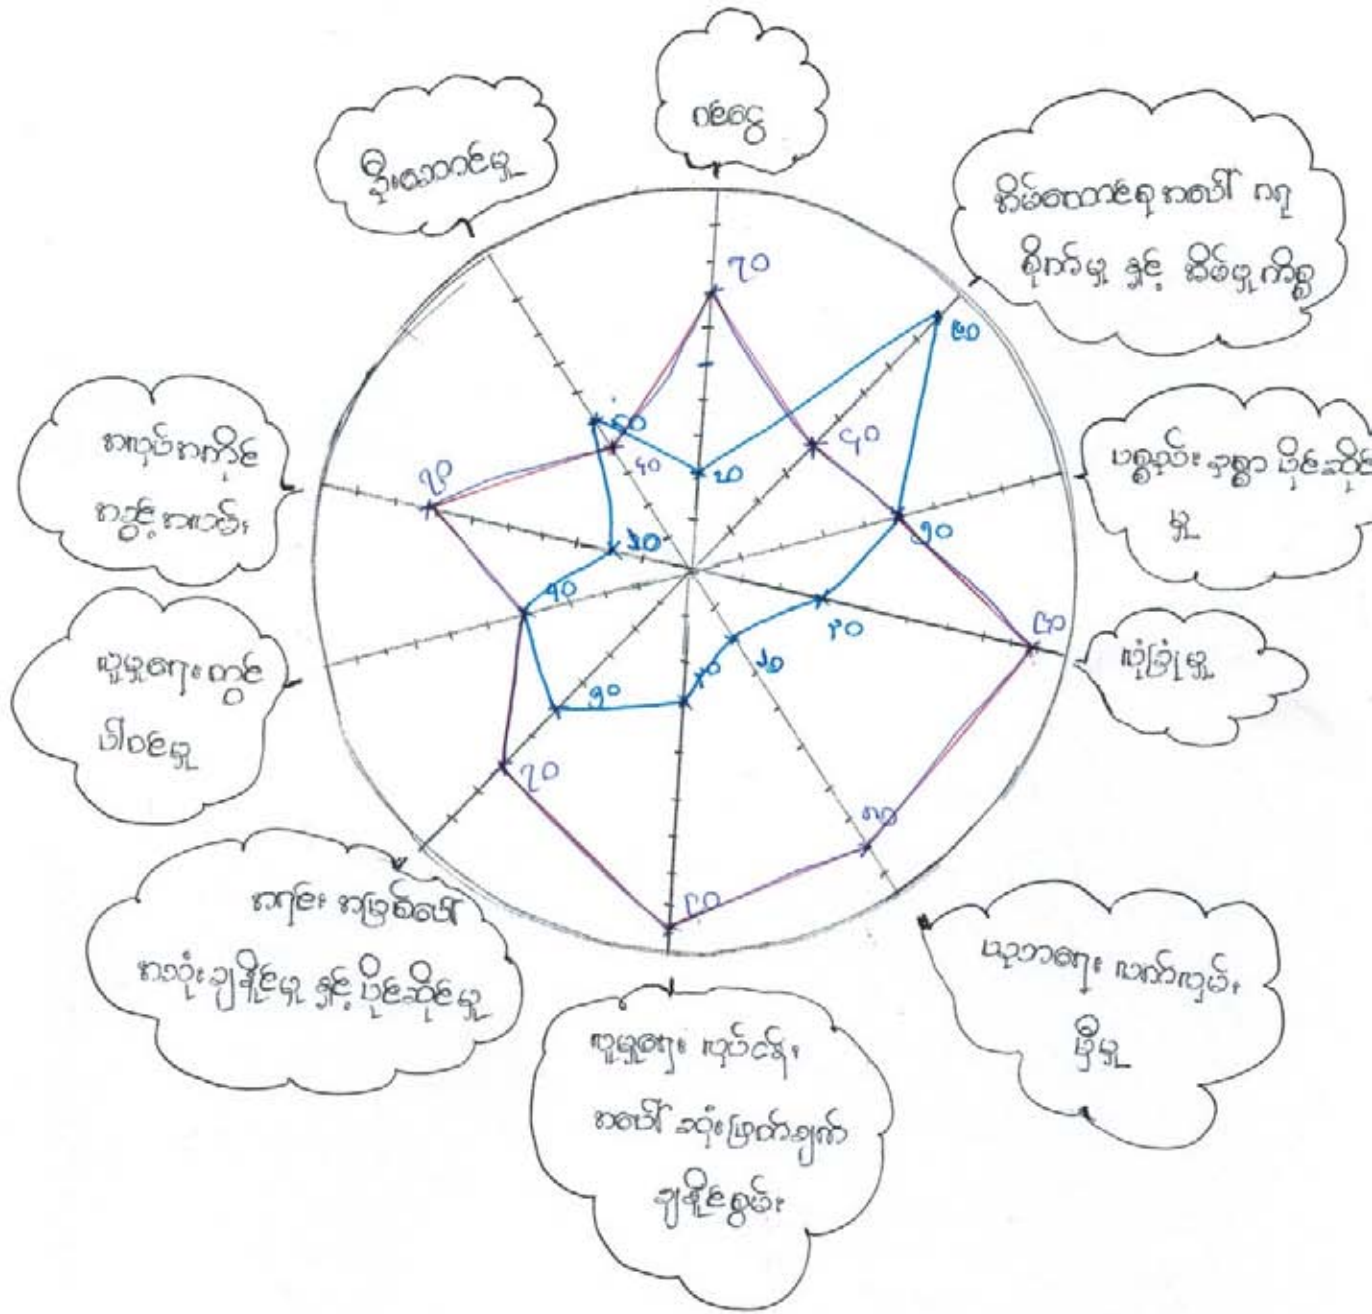 ဂငွေ
အိမ်ထောင်စုအပေါ် ဂရု
စိုက်မှု နှင့် အိမ်မှုကိစ္စ
ပစ္စည်းဥစ္စာ ပိုင်ဆိုင်
မှု
လုံခြုံမှု
ပညာရေး လက်လှမ်း
မှီမှု
လူမှုရေး လုပ်ငန်း
အပေါ် ဆုံးဖြတ်ချက်
ချနိုင်စွမ်း
အရင်း အမြစ်ပေါ်
အသုံးချနိုင်မှု နှင့် ပိုင်ဆိုင်မှု
လူမှုရေးတွင်
ပါဝင်မှု
အလုပ်အကိုင်
အခွင့်အလမ်း
ဦးဆောင်မှု
၇၀
၄၀
၉၀
၂၀
၅၀
၉၀
၃၀
၈၀
၂၀
၉၀
၇၀
၅၀
၇၀
၂၀
၄၀